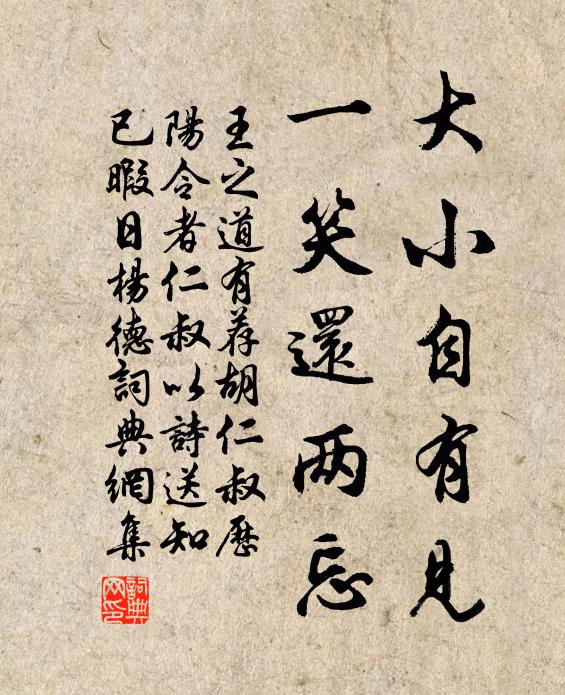 大小自有見
一笑還兩忘
王之道有荐胡仁叔歷
陽令者仁叔以詩送知
已暇日楊德詞典網集
詞典
网印